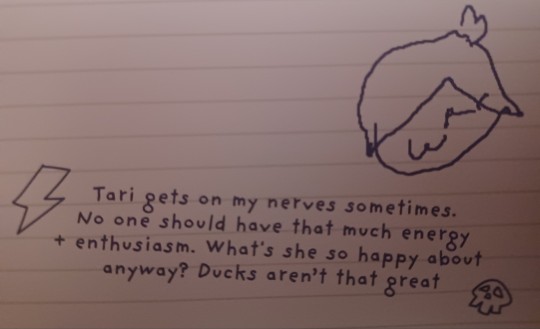 Tari gets on my nerves sometimes.
No one should have that much energy
+ enthusiasm. What's she so happy about
anyway? Ducks aren't that great